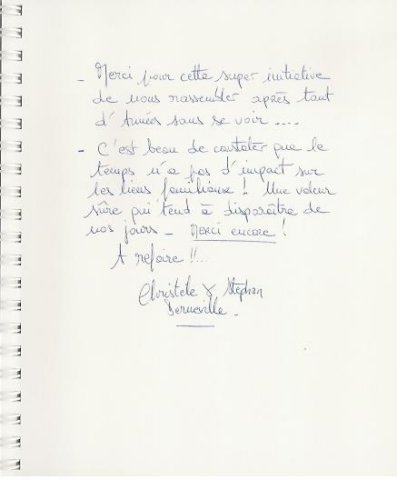 - Merci pour cette super initiative
de nous rassembler après tant
d'Années sans se voir ....
- C'est beau de constater que le
temps n'a pas d'impact sur
les liens familiaux ! Une valeur
sûre qui tend à disparaître de
nos jours - Merci encore !
A refaire !!...
Christele & Stephan